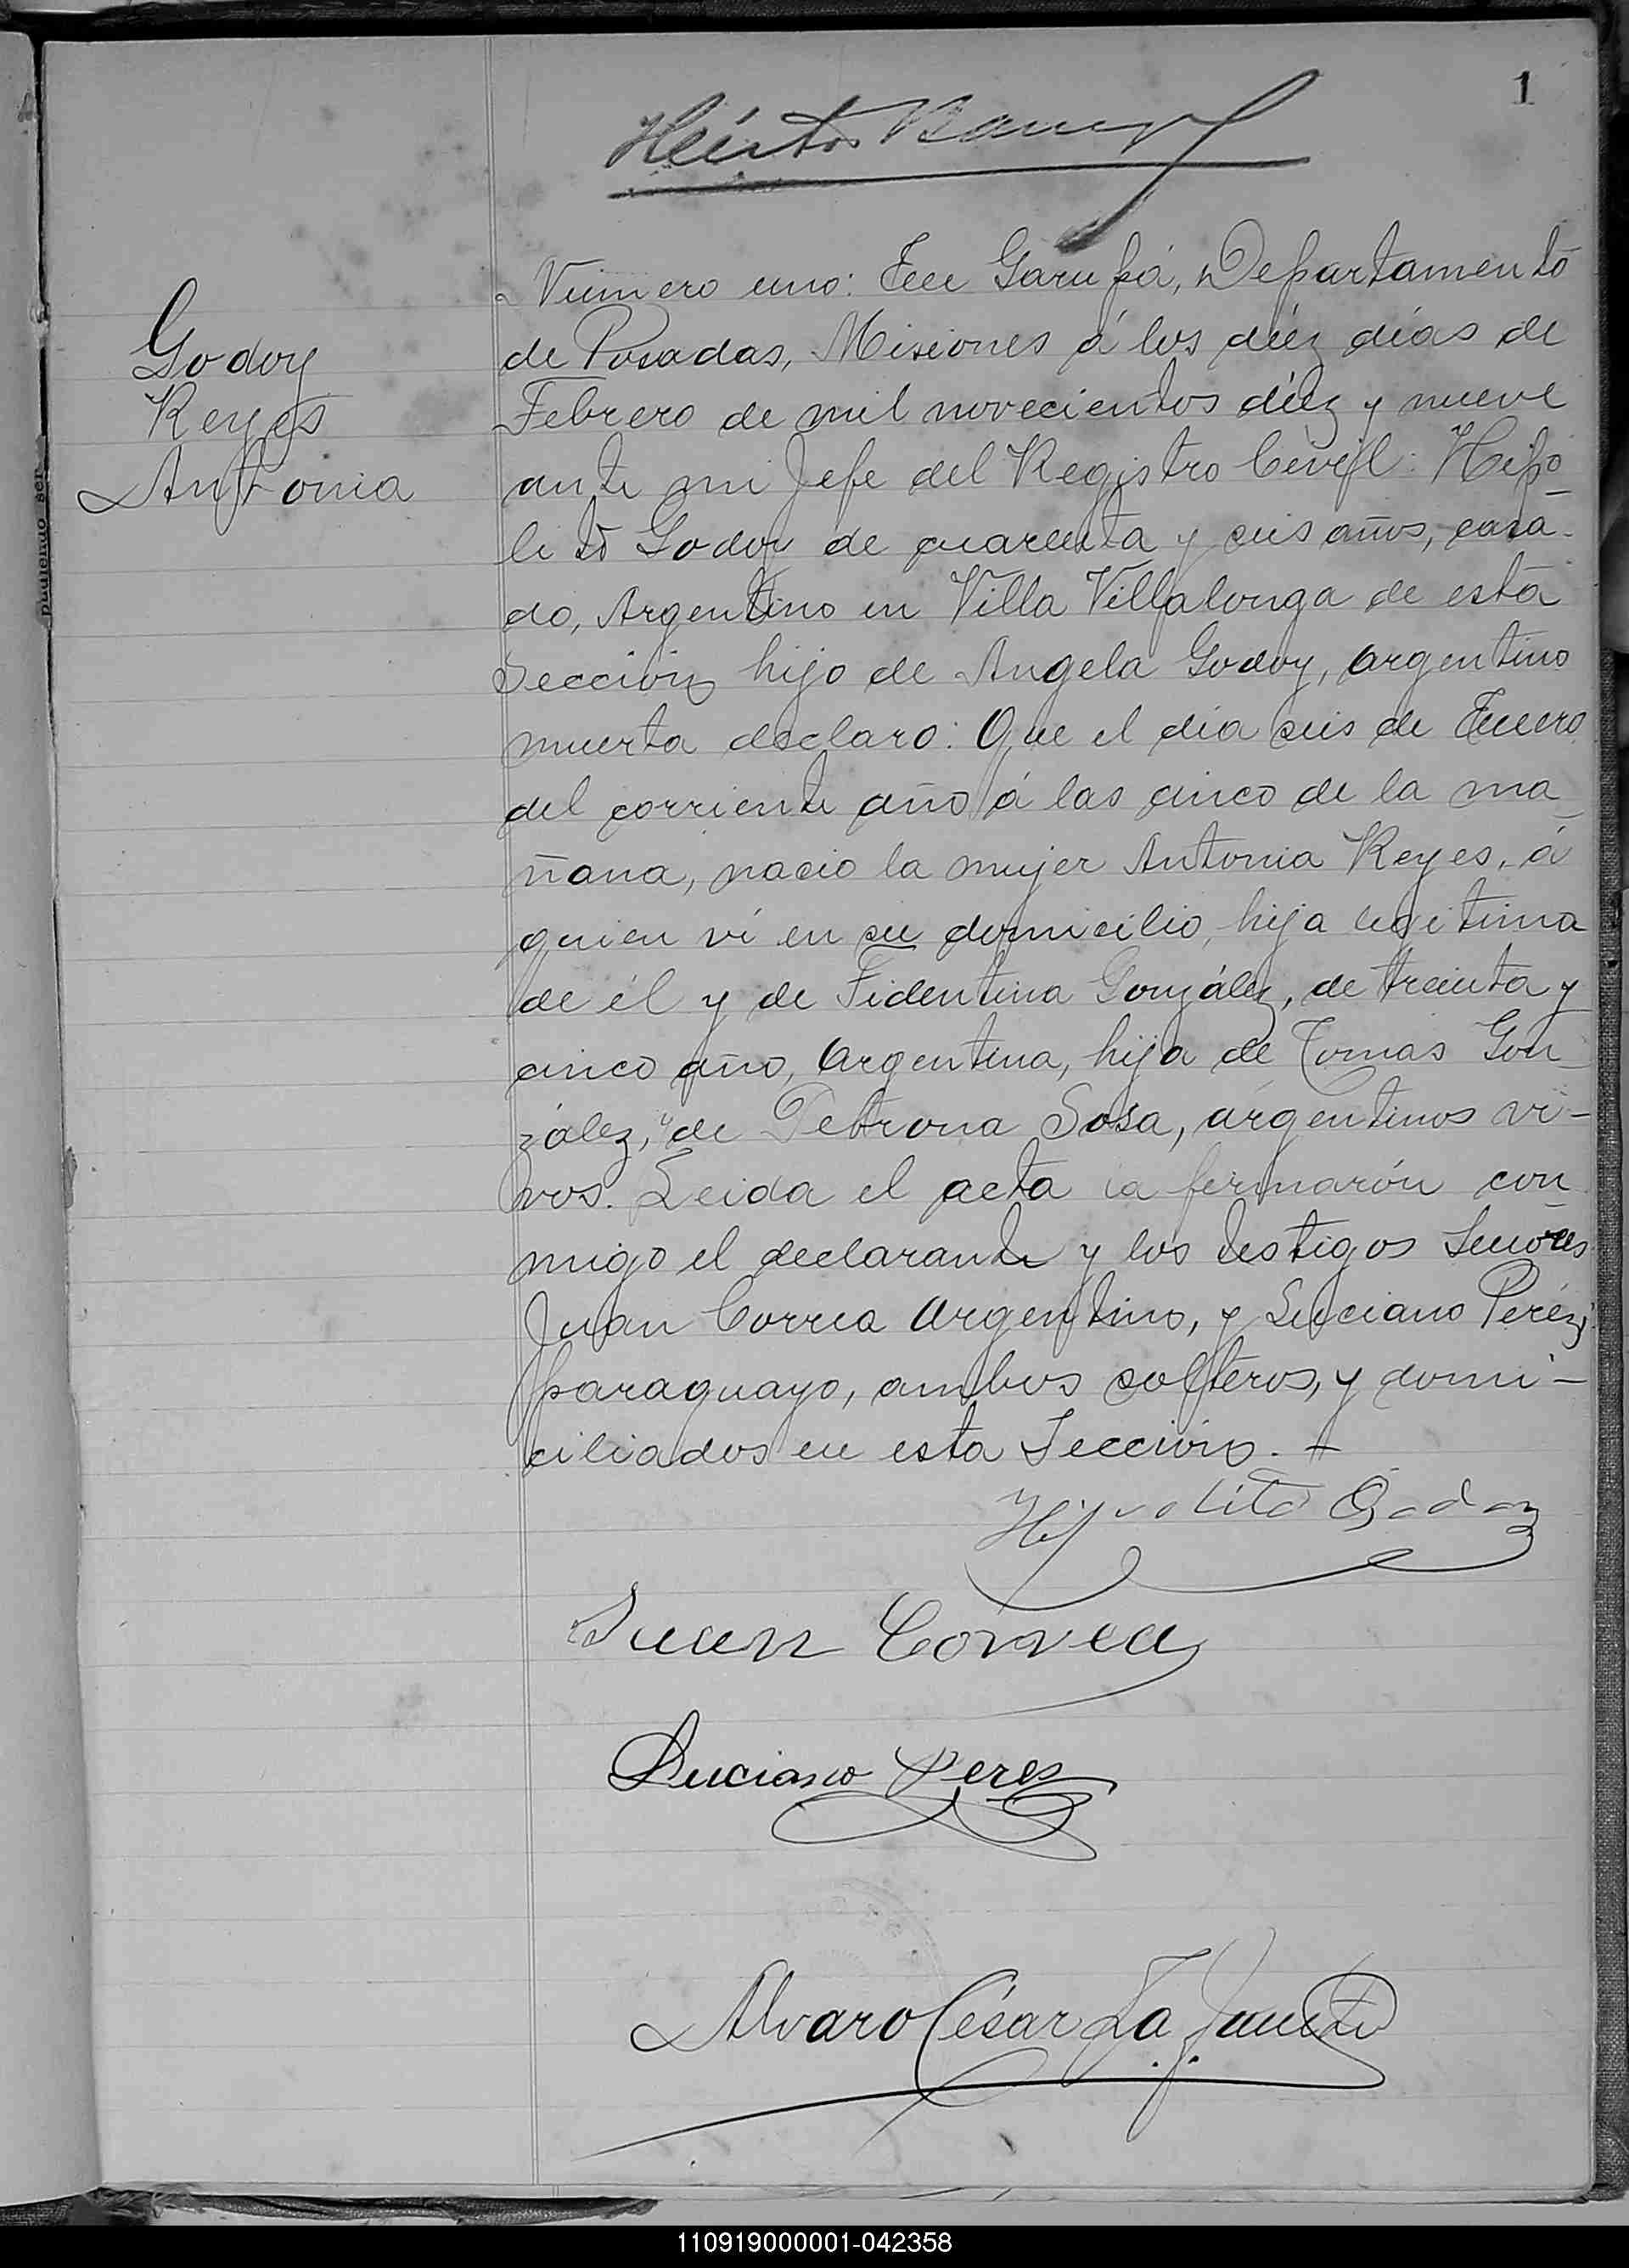 1
Godoy
Reyes
Antonia
Número uno: En Garupá, Departamento
de Posadas, Misiones á los diéz días de
Febrero de mil novecientos diéz y nueve
ante mi Jefe del Registro Civil: Hipó-
lito Godoy de cuarenta y seis años, casa-
do, Argentino en Villa Villalonga de esta
Sección hijo de Angela Godoy, argentino
muerta declaro: Que el día seis de Enero
del corriente año á las cinco de la ma-
ñana, nacio la mujer Antonia Reyes, á
quien ví en su domicilio, hija legitima
de él y de Fidentina González, de treinta y
cinco año, argentina, hija de Tomas Gon-
zález, y de Petrona Sosa, argentinos vi-
vos. Leida el acta la firmarón con
migo el declarante y los testigos Señores
Juan Correa Argentino, y Luciano Peréz,
paraguayo, ambos solteros, y domi-
ciliados en esta Sección.
Hypolito Godoy
Juan Correa
Luciano Peres
Alvaro César La
pudiendo ser
110919000001-042358